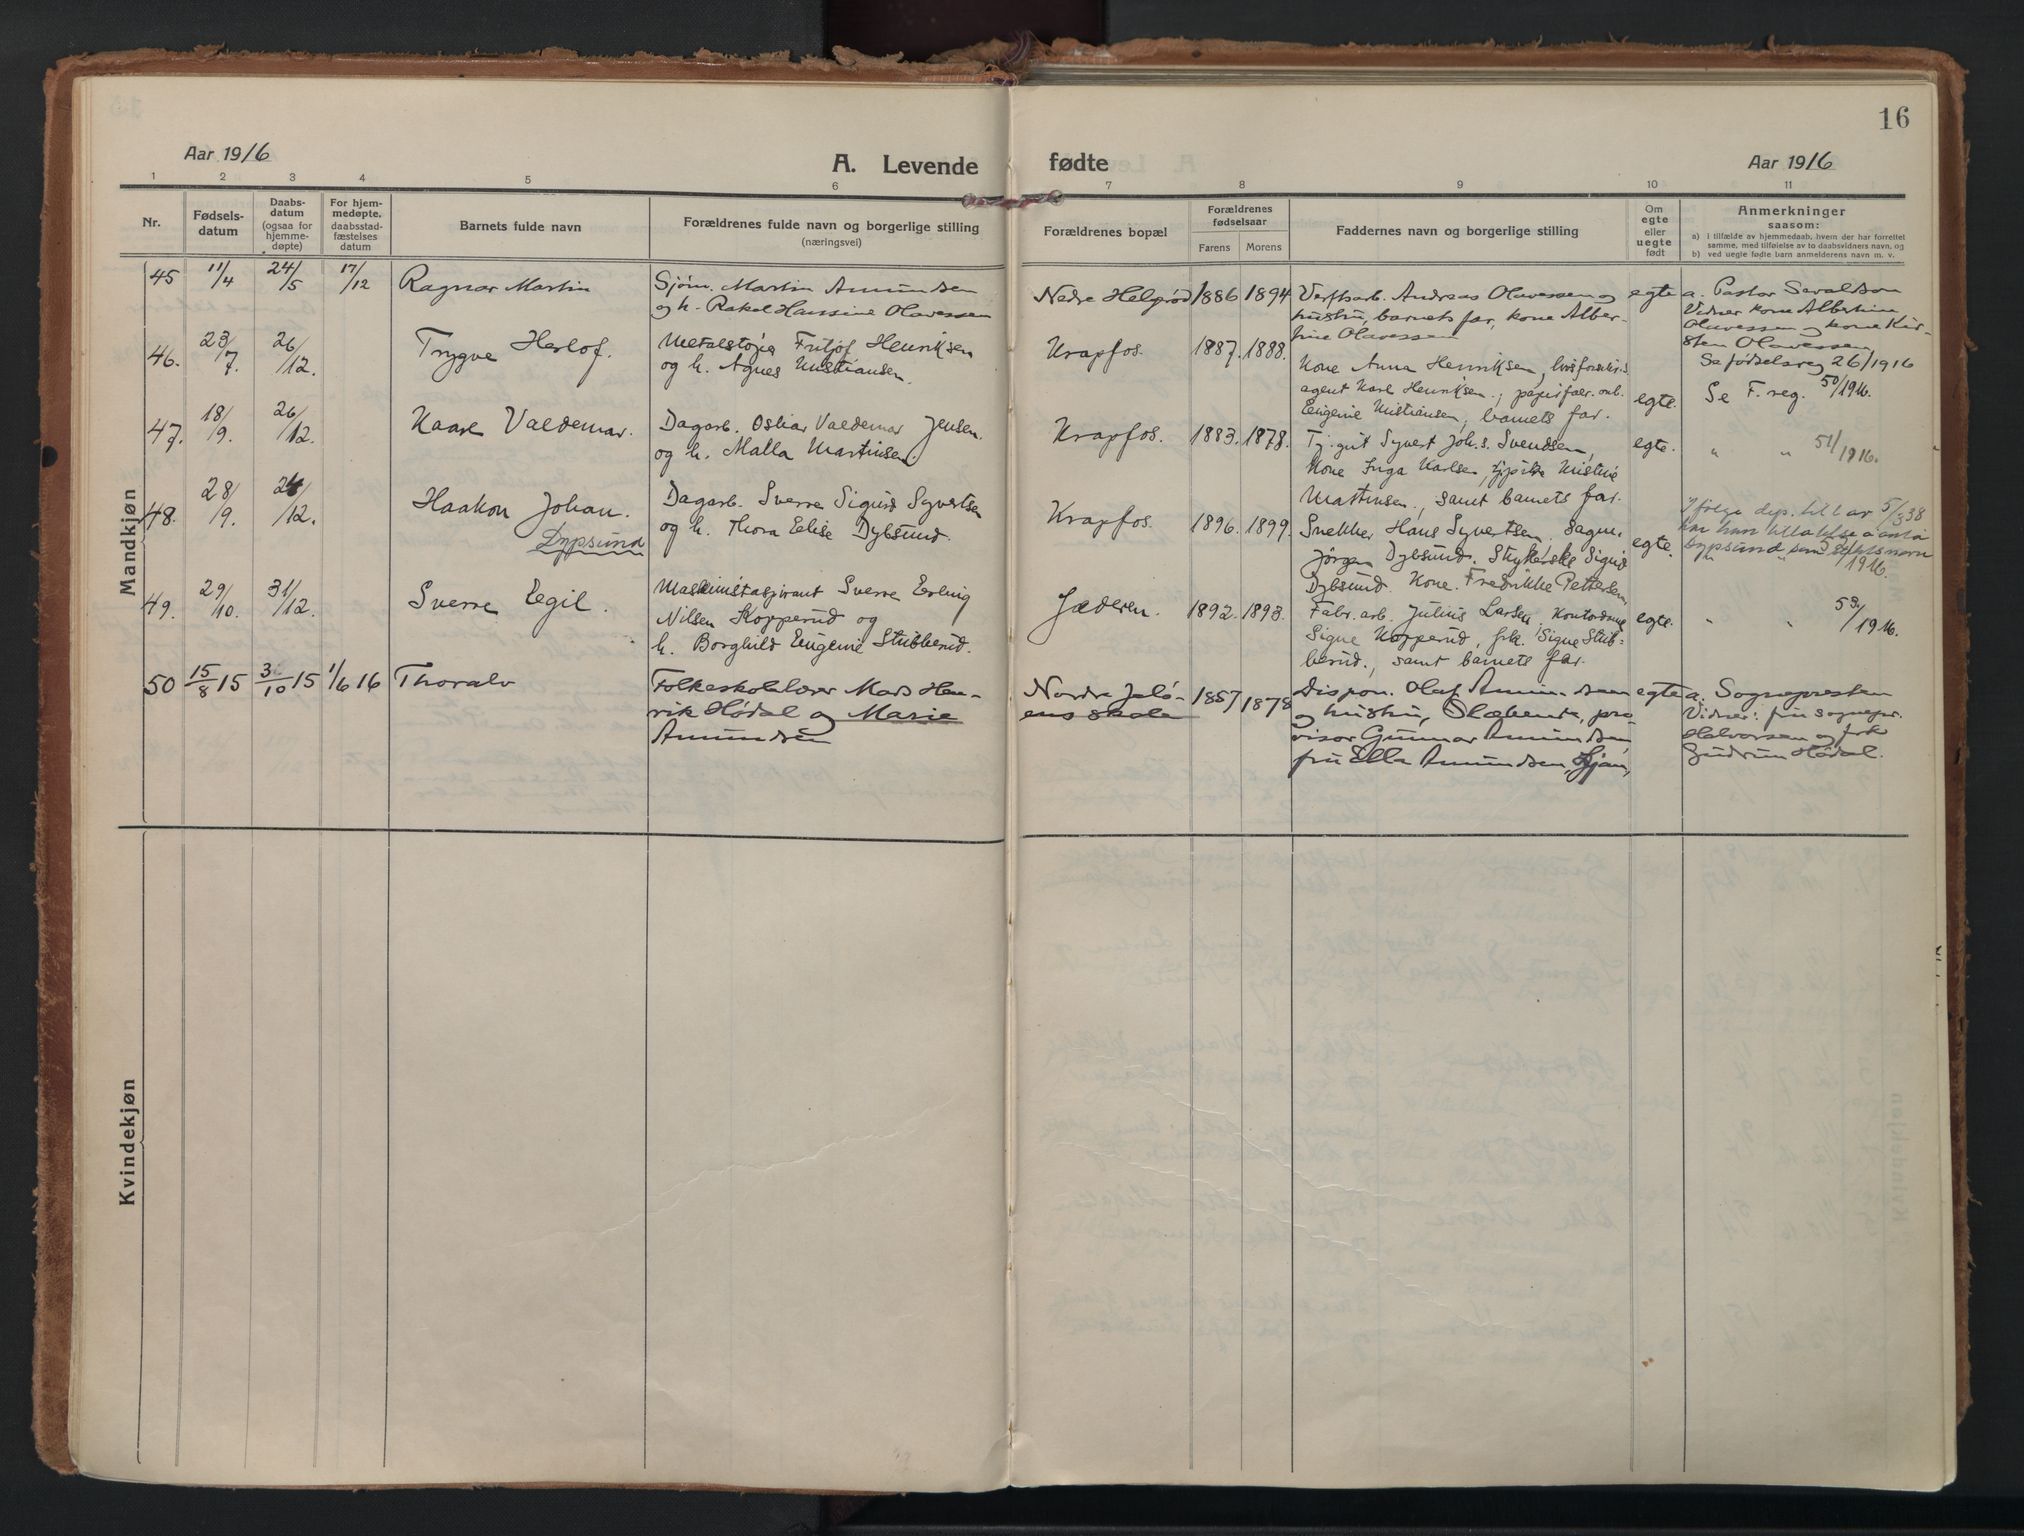 16
Aar 1916
A. Levende fødte
Aar 1916
1 2 3 4 5 6 7 8 9 10 11
Nr.
Fødsels-
datum
Daabs-
datum
(ogsaa for
hjemme-
døpte)
For hjem-
medøpte,
daabsstad-
fæstelses
datum
Barnets fulde navn
Forældrenes fulde navn og borgerlige stilling
(næringsvei)
Forældrenes bopæl
Forældrenes
fødselsaar
Farens Morens
Faddernes navn og borgerlige stilling
Om
egte
eller
uegte
født
Anmerkninger
saasom:
a) i tilfælde av hjemmedaab, hvem der har forrettet
samme, med tilføielse av to daabsvidners navn, og
b) ved uegte fødte barn anmelderens navn m. v.
Mandkjøn
45 11/4 24/5 17/12 Ragnar Martin
Sjøm. Martin Amundsen
og h. Rakel Hansine Olavessen
Nedre Helgerød 1886 1894
Verftsarb. Andreas Olavessen og
hustru, barnets far, kone Alber-
tine Olavessen
egte
a. Pastor Sevaldson
Vidner kone Albertine
Olavessen og kone Kir-
sten Olavessen
Se fødselsreg 26/1916
46. 23/7. 26/12. Trygve Herlof.
Metalstøper Fritjof Henriksen
og h. Agnes Kristiansen.
Krapfos. 1887. 1888.
Kone Anna Henriksen, livsforsikr.s
agent Karl Henriksen, papirfabr. arb.
Eugenie Kristiansen, barnets far.
egte.
Se F. reg. 50/1916.
47. 18/9. 26/12. Kaare Valdemar.
Dagarb. Oskar Valdemar Jensen.
og h. Malla Martinsen.
Krapfos. 1883. 1878.
Tj. gut Syvert Joh.s. Svendsen,
Kone Inga Karlsen, Kristine
Martinsen, samt barnets far.
egte.
" " 51/1916.
48. 28/9. 26/12. Haakon Johan.
Dypsund
Dagarb. Sverre Sigurd Syvertsen
og h. Thora Elise Dybsund.
Krapfos. 1896. 1899.
Snekker Hans Syvertsen. Sagm.
Jörgen Dybsund. Strykerske Sigrid
Dybsund. Kone Fredrikke Pettersen
egte.
Ifølge dep. till. av 5/3 38
har han tillatelse å anta
Dypsund som slektsnavn
" " /1916.
49. 29/10. 31/12. Sverre Egil.
Maskinistaspirant Sverre Erling
Nilsen Kopperud og
h. Borghild Eugenie Stubberud.
Jæderen. 1892. 1893.
Fabr. arb. Julius Larsen, Kontordame
Signe Kopperud, frk. Signe Stub-
berud, samt barnets far.
egte.
" " 53/1916.
50 15/8 15 3/10 15 1/6 16 Thoralv
Folkeskolelærer Mads Hen-
rik Hødal og Marie
Amundsen
Nordre Jelö-
ens skole 1857 1878
Dispon. Olaf Amundsen
og hustru, pro-
visor Gunnar Amundsen,
fru Ella Amundsen, Ljan,
egte
a. Sognepresten
Vidner: fru sognepr.
Halvorsen og frk
Gudrun Hødal.
Kvindekjøn